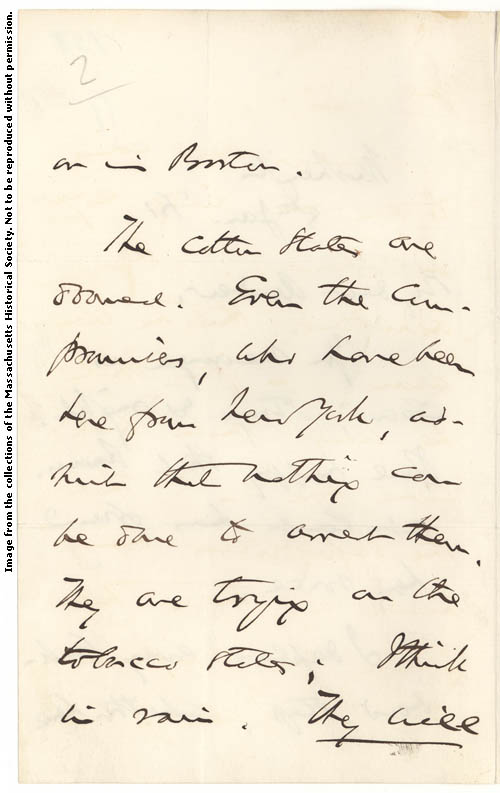 Image from the collections of the Massachusetts Historical Society. Not to be reproduced without permission.
2
or in Boston.
The cotton States are
doomed. Even the Com-
promisers, who have been
here from New York, ad-
mit that nothing can
be done to arrest them.
They are trying on the
tobacco states; I think
in vain. They will